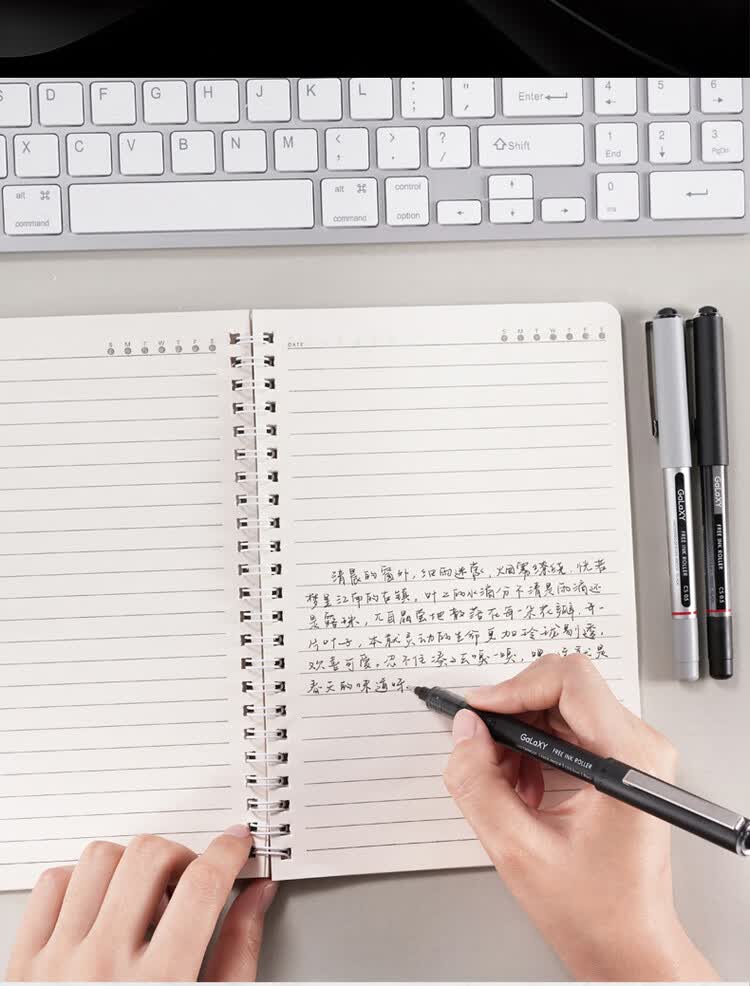 S D F G H J K L : ; " , Enter 4 5 6
X C V B N M < , > . ? / Shift 1 End 2 3 PgDn
alt command alt command control option 0 Ins
S M T W T F S
DATE S M T W T F S
清晨的窗外，细雨迷蒙，烟雾缭绕，恍若
梦里江南的古镇，叶上的水滴分不清是雨滴还
是露珠，兀自晶莹地散落在每一朵花瓣，每一
片叶子，本就灵动的生命更加玲珑剔透，
欢喜可爱。忍不住凑上去嗅一嗅，嗯，这就是
春天的味道呀。
GaLaXY FREE INK ROLLER
GaLaXY FREE INK ROLLER CS 0.5
GaLaXY FREE INK ROLLER CS 0.5